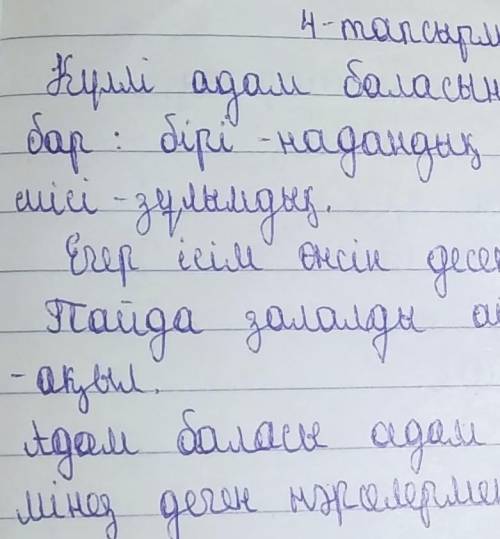 4-тапсырм
Күллі адам баласын
бар : бірі - надандық
шісі - зұлымдық.
Егер ісім өнсін десең
Пайда залалды а
- ақыл.
Адам баласы адам
мінез деген нәрселермен